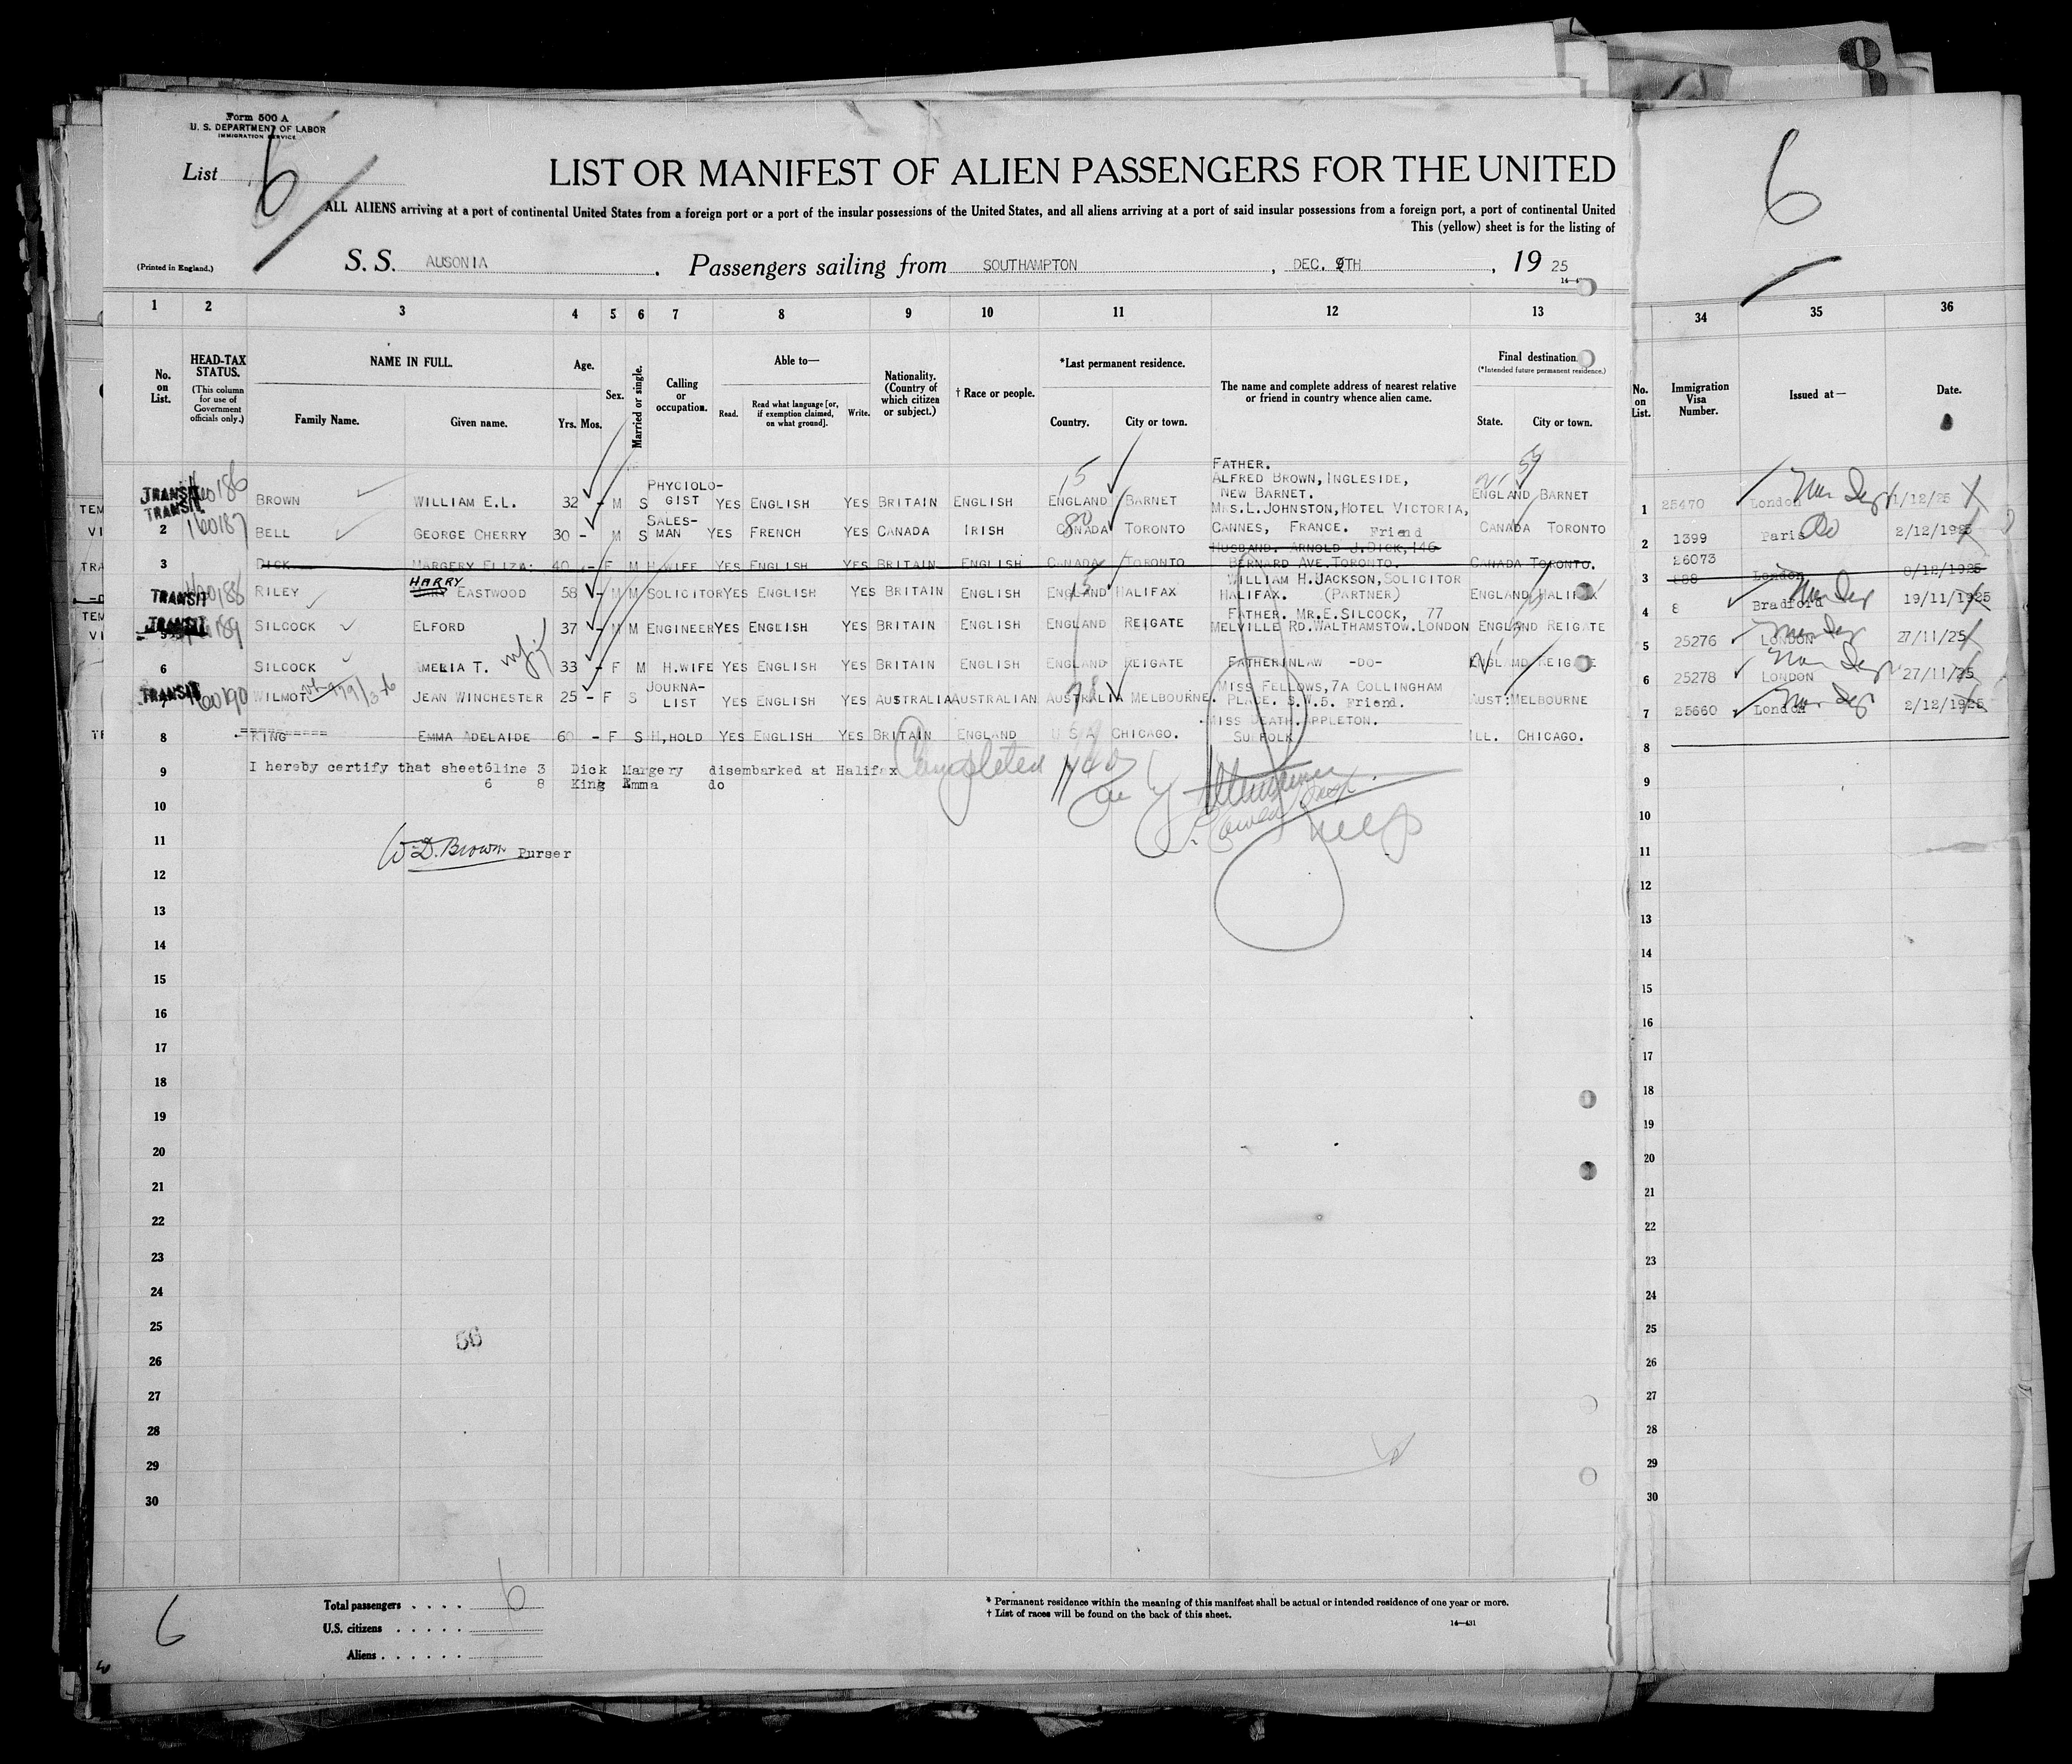 Form 500 A
U. S. DEPARTMENT OF LABOR
IMMIGRATION SERVICE
List 6
LIST OR MANIFEST OF ALIEN PASSENGERS FOR THE UNITED
ALL ALIENS arriving at a port of continental United States from a foreign port or a port of the insular possessions of the United States, and all aliens arriving at a port of said insular possessions from a foreign port, a port of continental United
This (yellow) sheet is for the listing of
(Printed in England.)
S. S. AUSONIA . Passengers sailing from SOUTHAMPTON , DEC. 9TH , 19 25
1 2 3 4 5 6 7 8 9 10 11 12 13
No. on List.
HEAD-TAX STATUS.
(This column for use of Government officials only.)
NAME IN FULL.
Family Name. Given name.
Age.
Yrs. Mos.
Sex.
Married or single.
Calling or occupation.
Able to—
Read. Read what language [or, if exemption claimed, on what ground]. Write.
Nationality. (Country of which citizen or subject.)
† Race or people.
*Last permanent residence.
Country. City or town.
The name and complete address of nearest relative or friend in country whence alien came.
Final destination.
(*Intended future permanent residence.)
State. City or town.
TRANSIT 160186 BROWN WILLIAM E.L. 32 - M S PHYCIOLOGIST YES ENGLISH YES BRITAIN ENGLISH ENGLAND BARNET FATHER. ALFRED BROWN, INGLESIDE, NEW BARNET. ENGLAND BARNET
TRANSIT 2 160187 BELL GEORGE CHERRY 30 - M S SALES-MAN YES FRENCH YES CANADA IRISH CANADA TORONTO MRS.L.JOHNSTON, HOTEL VICTORIA, CANNES, FRANCE. Friend CANADA TORONTO
3 DICK MARGERY ELIZA: 40 - F M H.WIFE YES ENGLISH YES BRITAIN ENGLISH CANADA TORONTO HUSBAND. ARNOLD J.DICK, 146 BERNARD AVE, TORONTO. CANADA TORONTO.
TRANSIT 160188 RILEY HARRY EASTWOOD 58 - M M SOLICITOR YES ENGLISH YES BRITAIN ENGLISH ENGLAND HALIFAX WILLIAM H.JACKSON, SOLICITOR HALIFAX. (PARTNER) ENGLAND HALIFAX
TRANSIT 160189 SILCOCK ELFORD 37 - M M ENGINEER YES ENGLISH YES BRITAIN ENGLISH ENGLAND REIGATE FATHER. MR.E.SILCOCK, 77 MELVILLE RD.WALTHAMSTOW.LONDON ENGLAND REIGATE
6 SILCOCK AMELIA T. 33 - F M H.WIFE YES ENGLISH YES BRITAIN ENGLISH ENGLAND REIGATE FATHERINLAW -DO- ENGLAND REIGATE
TRANSIT 160190 WILMOT JEAN WINCHESTER 25 - F S JOURNA-LIST YES ENGLISH YES AUSTRALIA AUSTRALIAN AUSTRALIA MELBOURNE. MISS FELLOWS, 7A COLLINGHAM PLACE. S.W.5. Friend. AUST: MELBOURNE
8 KING EMMA ADELAIDE 60 - F S H,HOLD YES ENGLISH YES BRITAIN ENGLAND U S A CHICAGO. MISS DEATH. APPLETON. SUFFOLK ILL. CHICAGO.
9 I hereby certify that sheet 6 line 3 Dick Margery disembarked at Halifax
6 8 King Emma do
Completed
W.D. Brown Purser
10
11
12
13
14
15
16
17
18
19
20
21
22
23
24
25
26
27
28
29
30
56
6
Total passengers . . . . 6
U.S. citizens . . . . .
Aliens . . . . . .
* Permanent residence within the meaning of this manifest shall be actual or intended residence of one year or more.
† List of races will be found on the back of this sheet.
14—431
8
6
34 35 36
No. on List. Immigration Visa Number. Issued at— Date.
1 25470 London 1/12/25
2 1399 Paris 2/12/1925
3 26073 London 8/12/1925
4 8 Bradford 19/11/1925
5 25276 LONDON 27/11/25
6 25278 LONDON 27/11/25
7 25660 London 2/12/1925
8
9
10
11
12
13
14
15
16
17
18
19
20
21
22
23
24
25
26
27
28
29
30